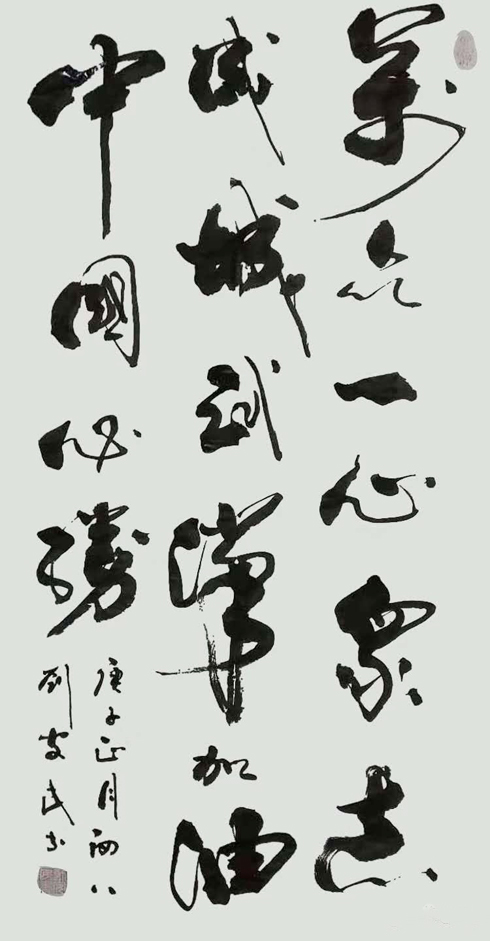 萬众一心衆志
成城武漢加油
中國必勝
庚子正月初八
刘安民书